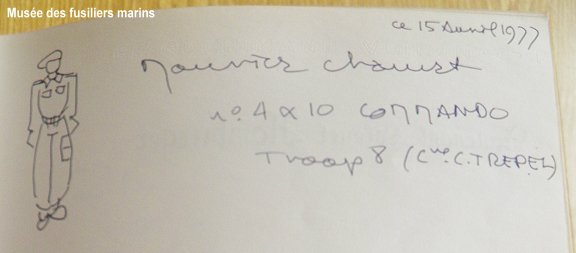 Musée des fusiliers marins
ce 15 Avril 1977
Maurice Chauvet
n°. 4 & 10 COMMANDO
Troop 8 (Cne C. TREPEL)